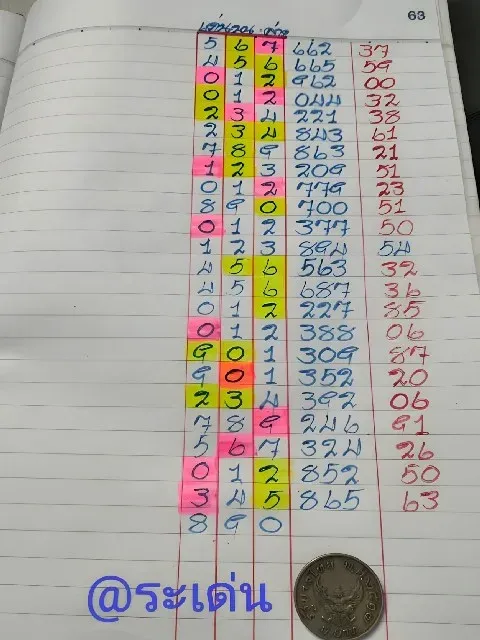 63
เด่นวน ล่าง
5 6 7 662 37
4 5 6 665 59
0 1 2 962 00
0 1 2 044 32
2 3 4 221 38
2 3 4 843 61
7 8 9 863 21
1 2 3 209 51
0 1 2 779 23
8 9 0 700 51
0 1 2 377 50
1 2 3 894 54
4 5 6 563 32
4 5 6 687 36
0 1 2 227 85
0 1 2 388 06
9 0 1 309 87
9 0 1 352 20
2 3 4 392 06
7 8 9 246 91
5 6 7 324 26
0 1 2 852 50
3 4 5 865 63
8 9 0
@ระเด่น